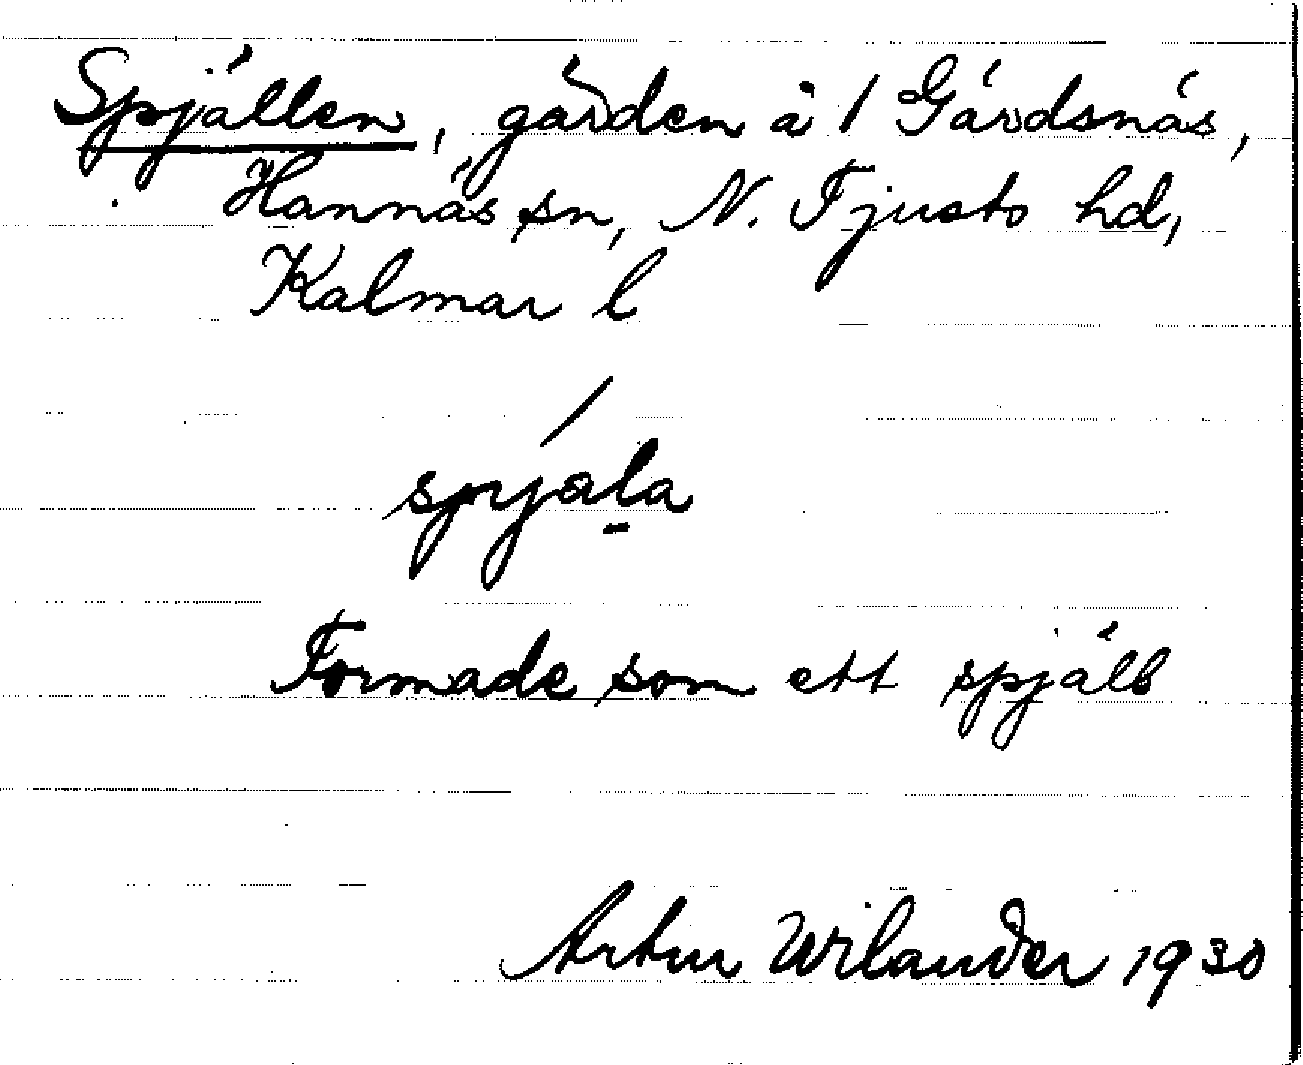 Spjällen, gärden å 1 Gärdsnäs,
Hannäs sn, N. Tjusts hd,
Kalmar l
spjala
Formade som ett spjäll
Artur Wilander 1930